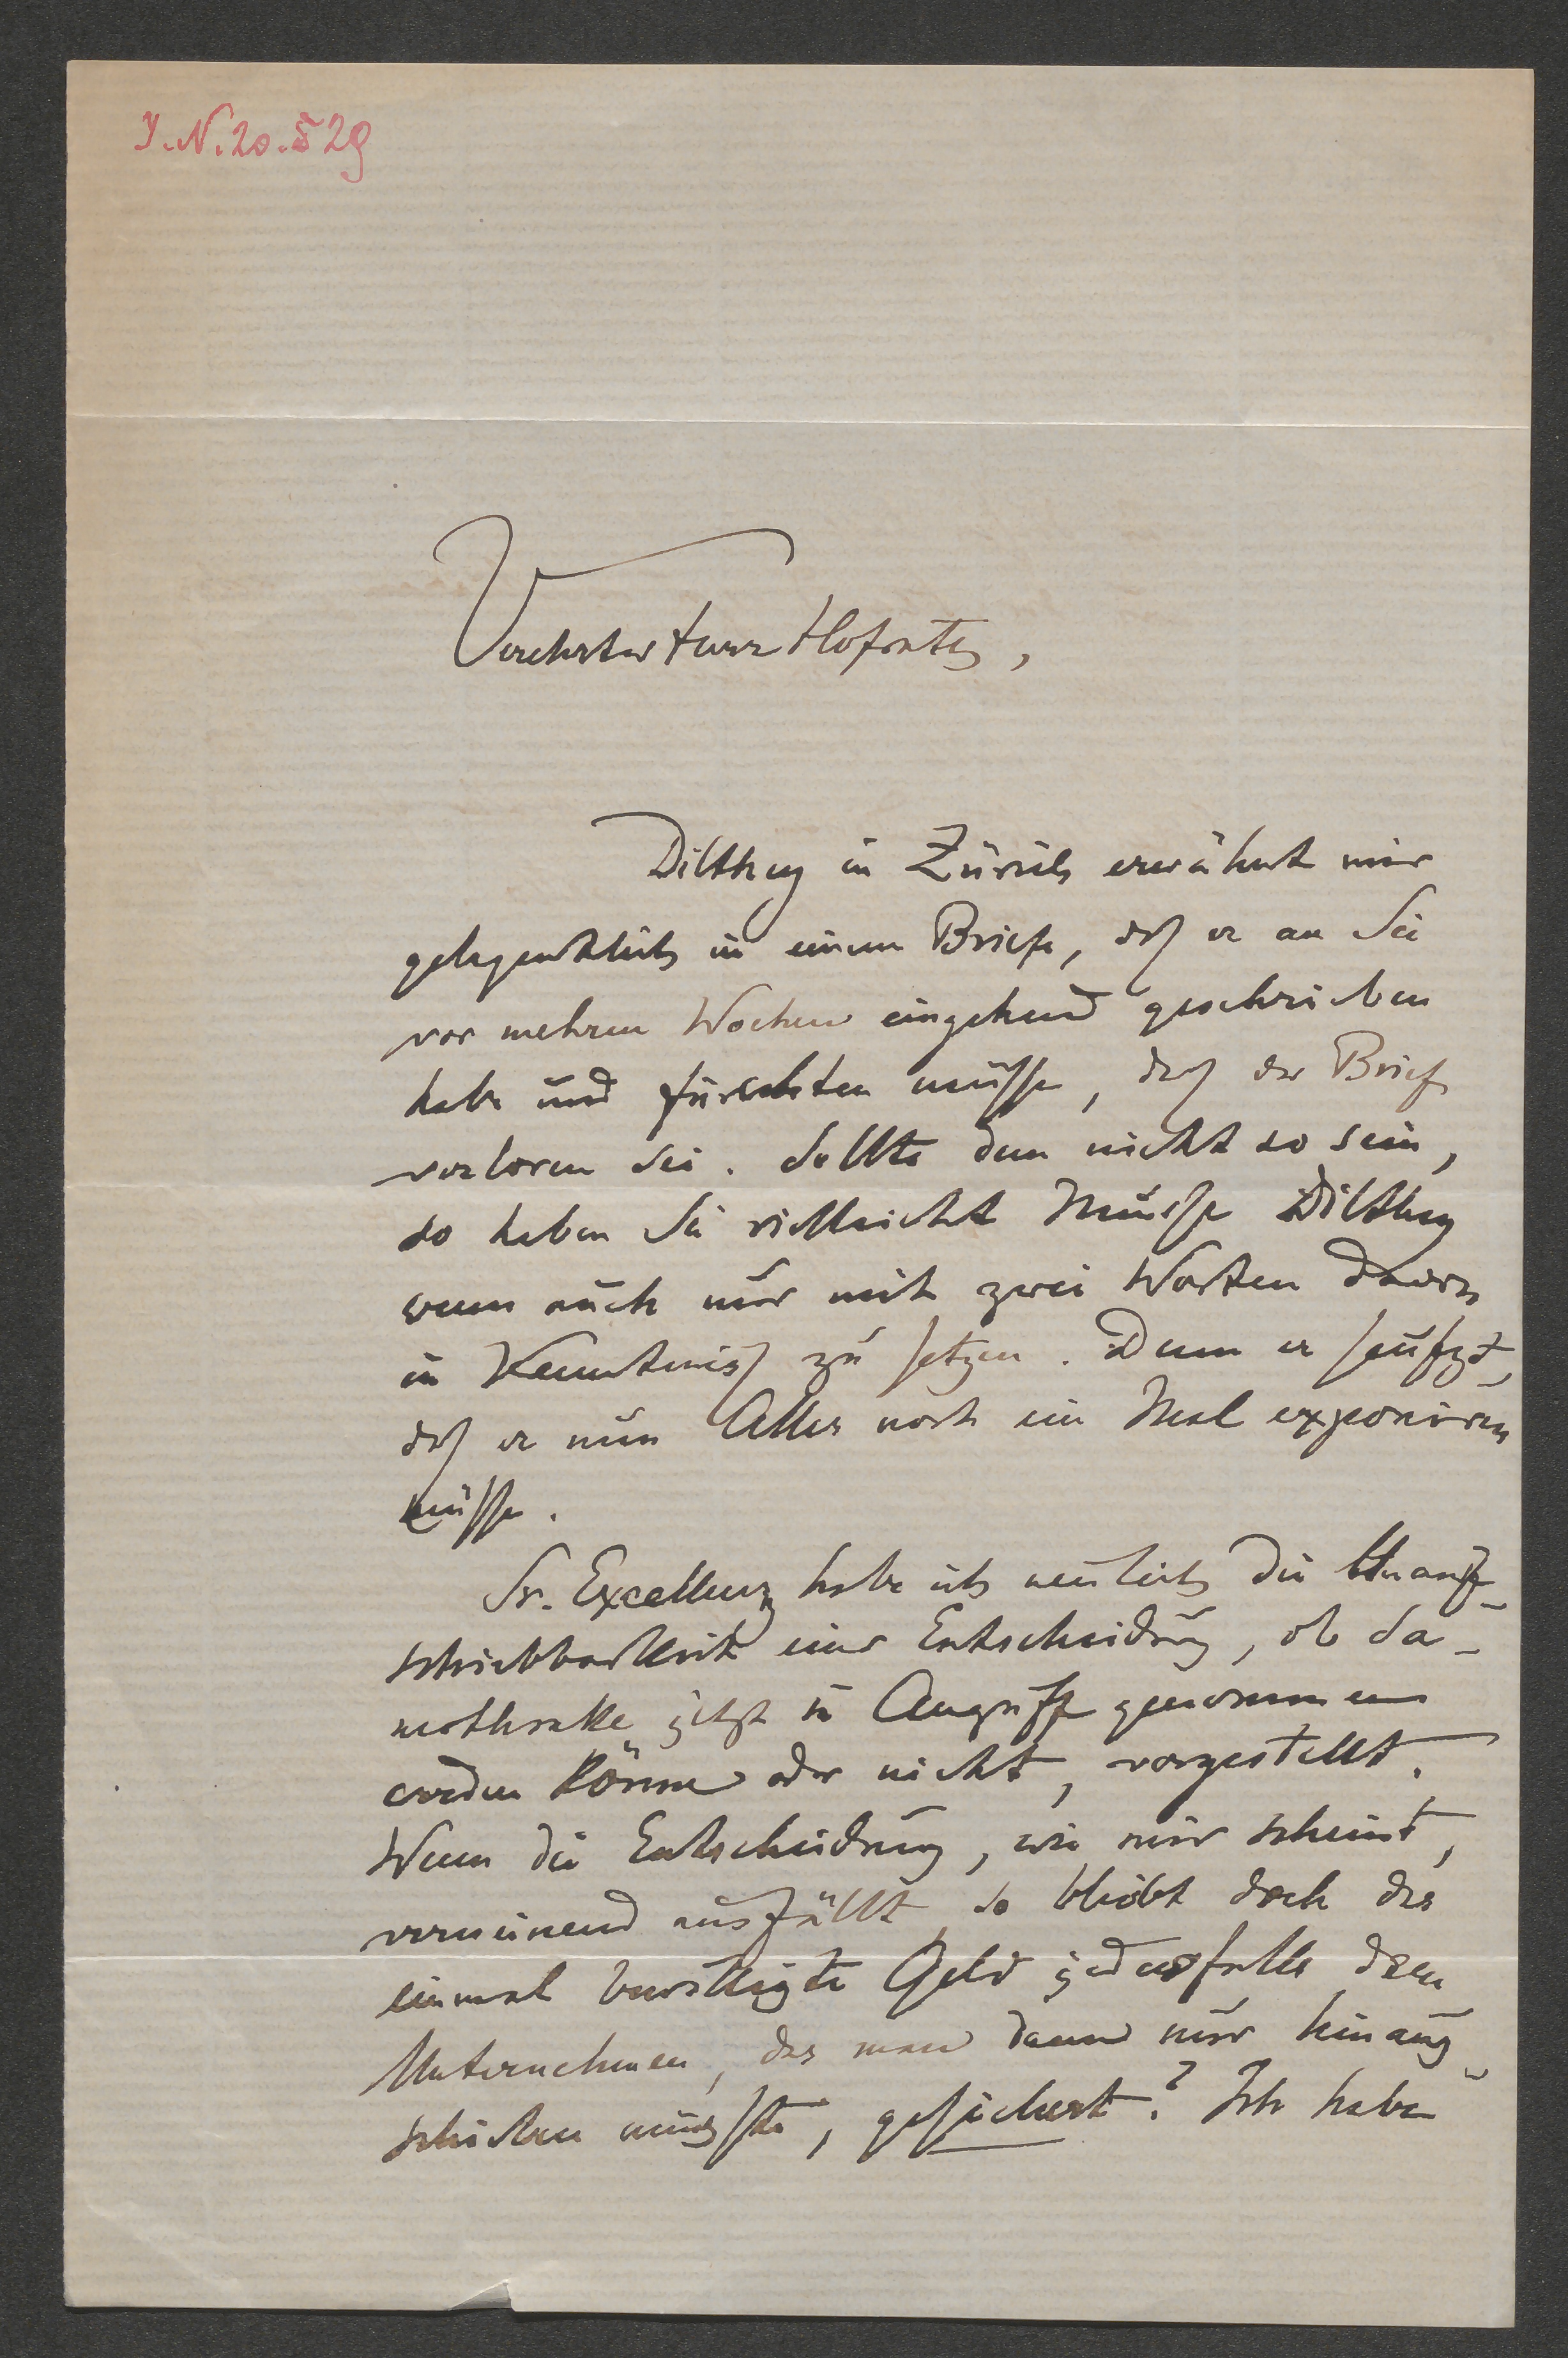 I.N. 20.529
Verehrter Herr Hofrath,
Dilthey in Zürich erwähnt mir
gelegentlich in einem Briefe, daß er an Sie
vor mehren Wochen eingehend geschrieben
habe und fürchten müsse, daß der Brief
verloren sei. Sollte dem nicht so sein,
so haben Sie vielleicht Musse Dilthey
wenn auch nur mit zwei Worten davon
in Kenntniß zu setzen. Denn er seufzt,
daß er nun Alles noch ein Mal exponiren
müsse.
Sr. Excellenz habe ich neulich die Unauf-
schiebbarkeit einer Entscheidung, ob Sa-
mothrake jetzt in Angriff genommen
werden könne oder nicht, vorgestellt.
Wenn die Entscheidung, wie mir scheint,
verneinend ausfällt, so bleibt doch das
einmal bewilligte Geld jedesfalls dem
Unternehmen, das man dann nur hinaus-
schieben müsste, gesichert? Ich habe